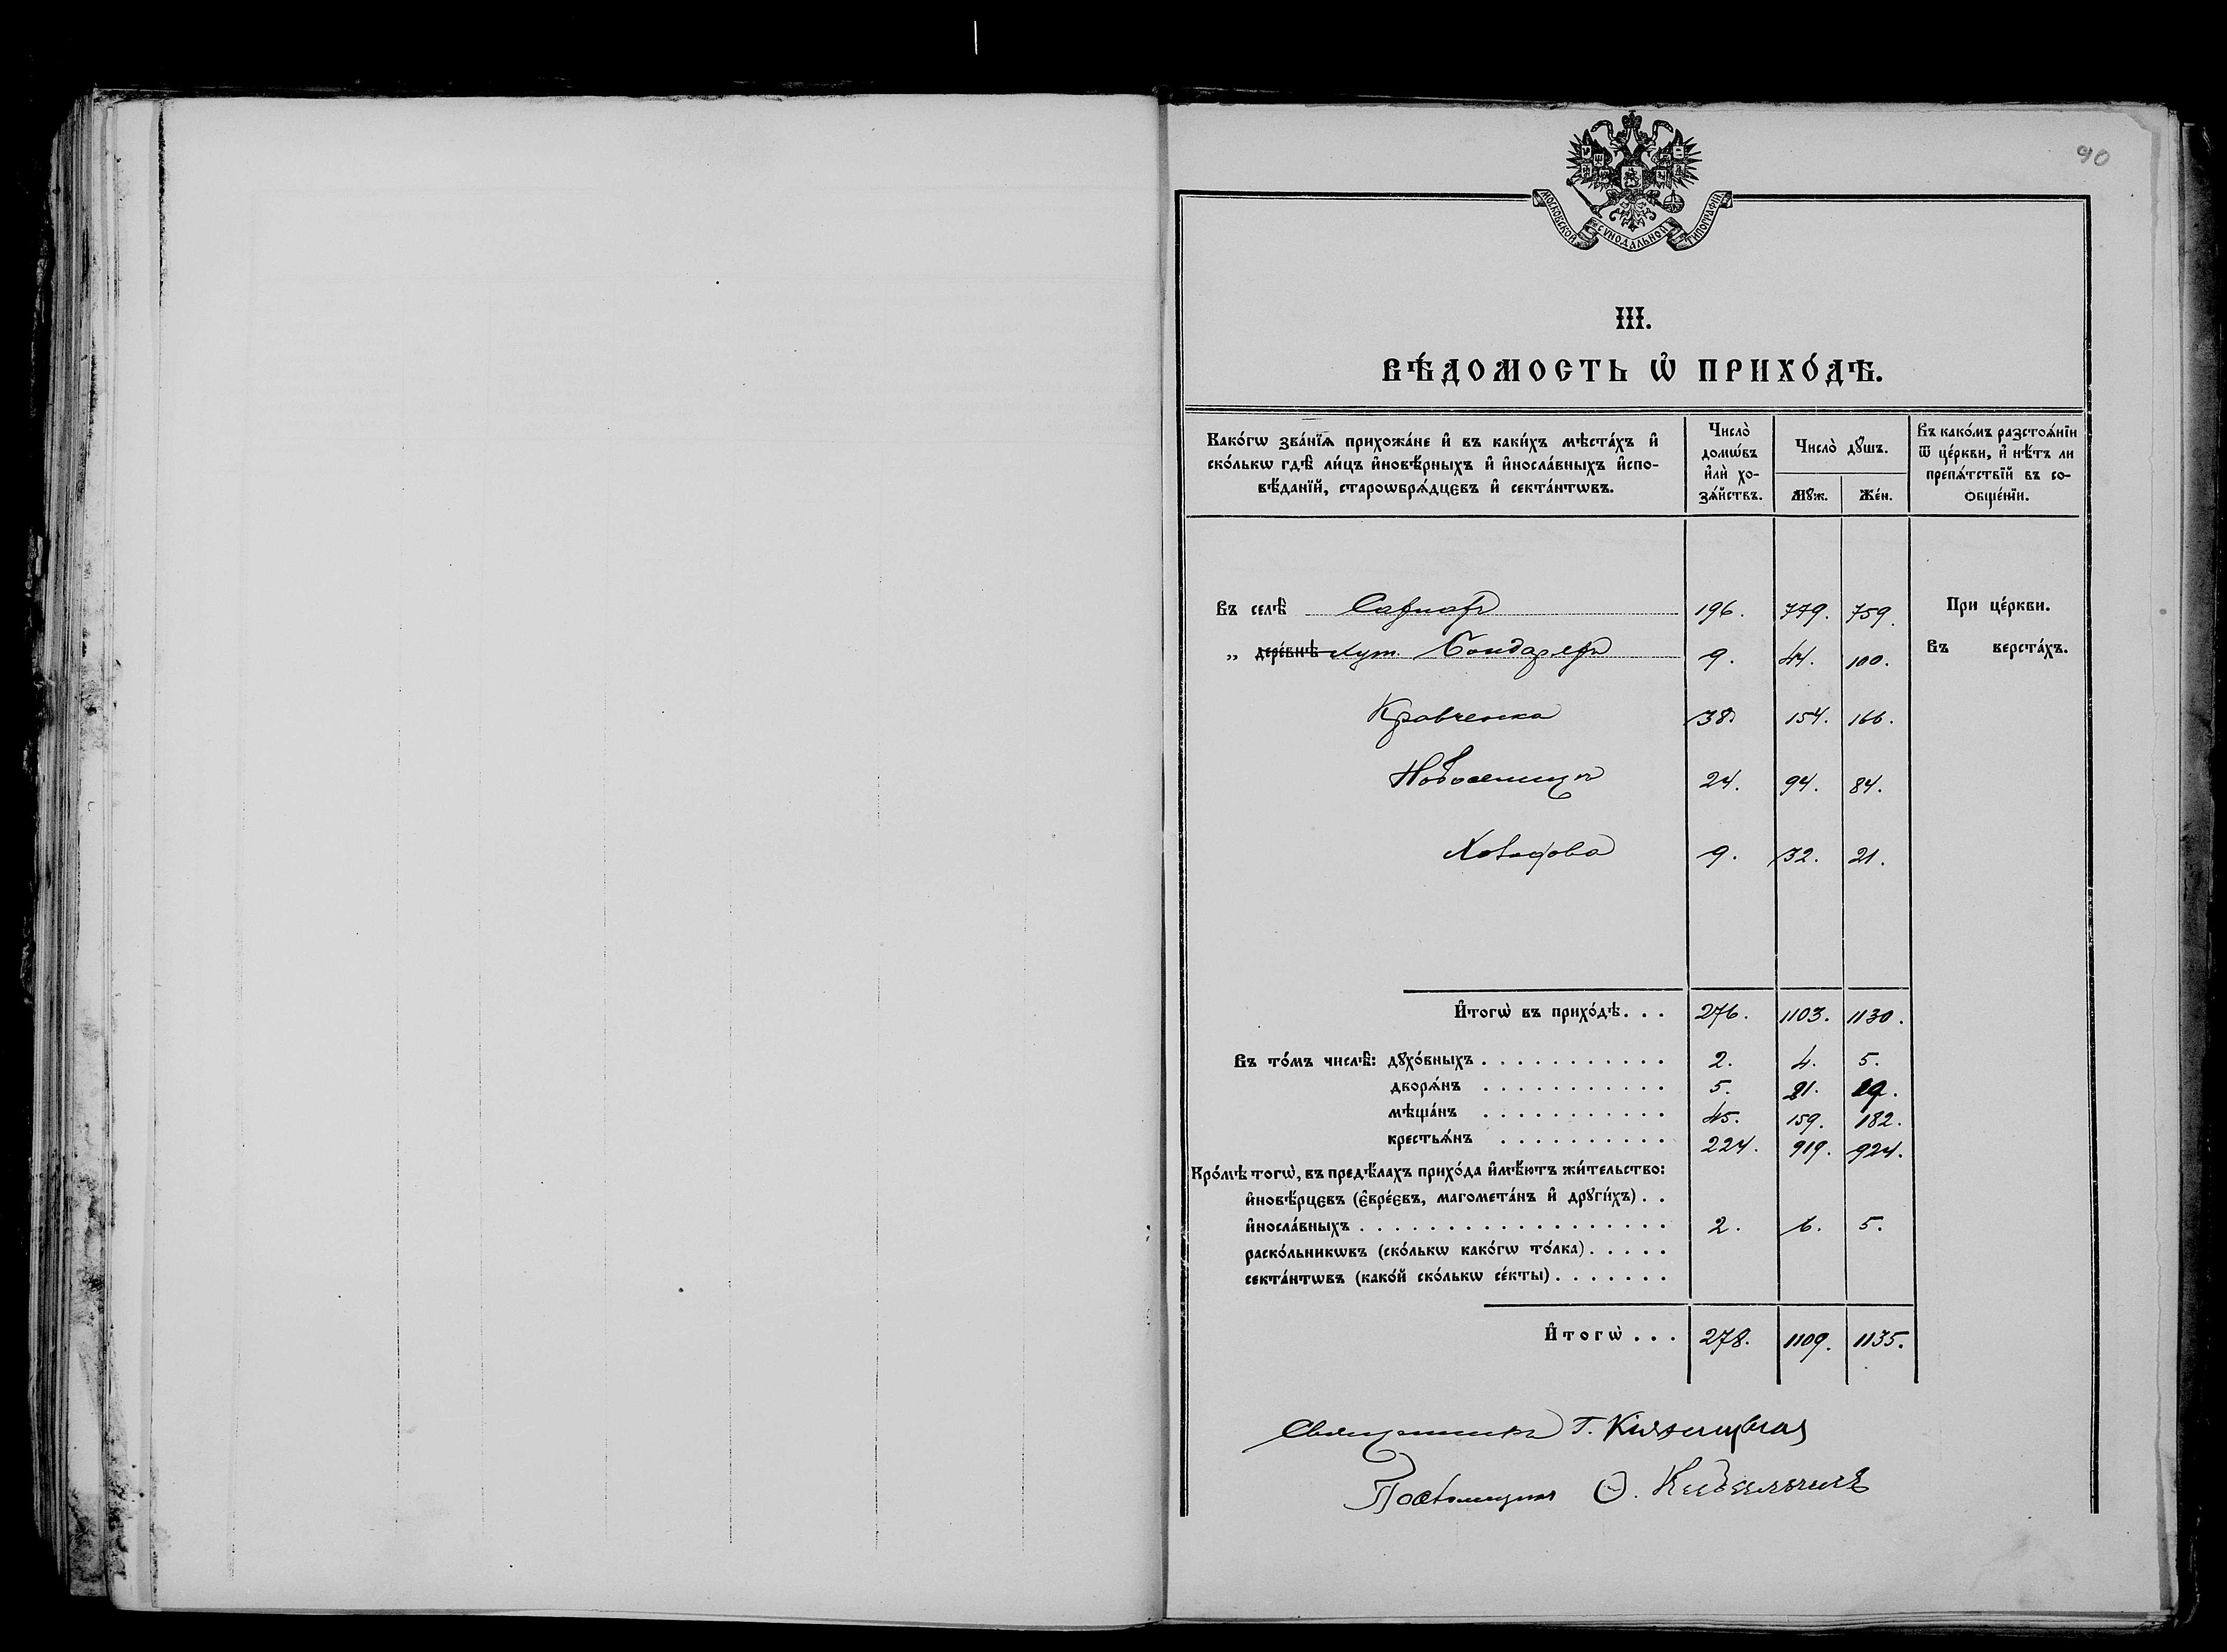 90
МОСКОВСКОЙ СѴНОДАЛЬНОЙ ТИПОГРАФІИ
III.
ВѢ́ДОМОСТЬ Ѡ҆ ПРИХО́ДѢ.
Како́гѡ зва́нїѧ прихожа́не и҆ въ каки́хъ мѣста́хъ и҆
ско́лькѡ гдѣ̀ ли́цъ и҆новѣ́рныхъ и҆ и҆носла́вныхъ и҆спо-
вѣ́данїй, староѡбрѧ́дцєвъ и҆ секта́нтѡвъ.
Число̀
домѡ́въ
и҆лѝ хо-
зѧ́йствъ.
Число̀ дꙋ́шъ.
Мꙋ́ж.
Же́н.
Въ како́мъ разстоѧ́нїи
ѿ це́ркви, и҆ нѣ́тъ ли
препѧ́тствїй въ со-
ѻбще́нїи.
Въ селѣ̀ 196. 779. 759. При це́ркви.
„ дере́внѣ хут. 9. 44. 100. Въ верста́хъ.
Кравченка 38. 154. 166.
Новоселица 24. 94. 84.
9. 32. 21.
И҆тогѡ̀ въ прихо́дѣ. . . 276. 1103. 1130.
Въ то́мъ числѣ̀: дꙋхо́вныхъ . . . . . . . . . . . 2. 4. 5.
дворѧ́нъ . . . . . . . . . . . 5. 21. 19.
мѣща́нъ . . . . . . . . . . . 45. 159. 182.
крестьѧ́нъ . . . . . . . . . . 224. 919. 924.
Кро́мѣ тогѡ̀, въ предѣ́лахъ прихо́да и҆мѣ́ютъ жи́тельство:
и҆новѣ́рцєвъ (є҆вре́євъ, магомета́нъ и҆ дрꙋги́хъ) . .
и҆носла́вныхъ . . . . . . . . . . . . . . . . . . 2. 6. 5.
раско́льникѡвъ (ско́лькѡ како́гѡ то́лка) . . . . .
секта́нтѡвъ (како́й ско́лькѡ се́кты) . . . . . . .
И҆тогѡ̀ . . . 278. 1109. 1135.
Священникъ Г.
Псаломщикъ Ѳ.